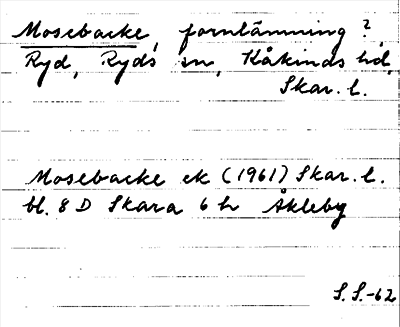 Mosebacke, fornlämning?
Ryd, Ryds sn, Kåkinds hd,
Skar. l.
Mosebacke ek (1961) Skar. l.
bl. 8 D Skara 6 h Åkleby
S.S.-62